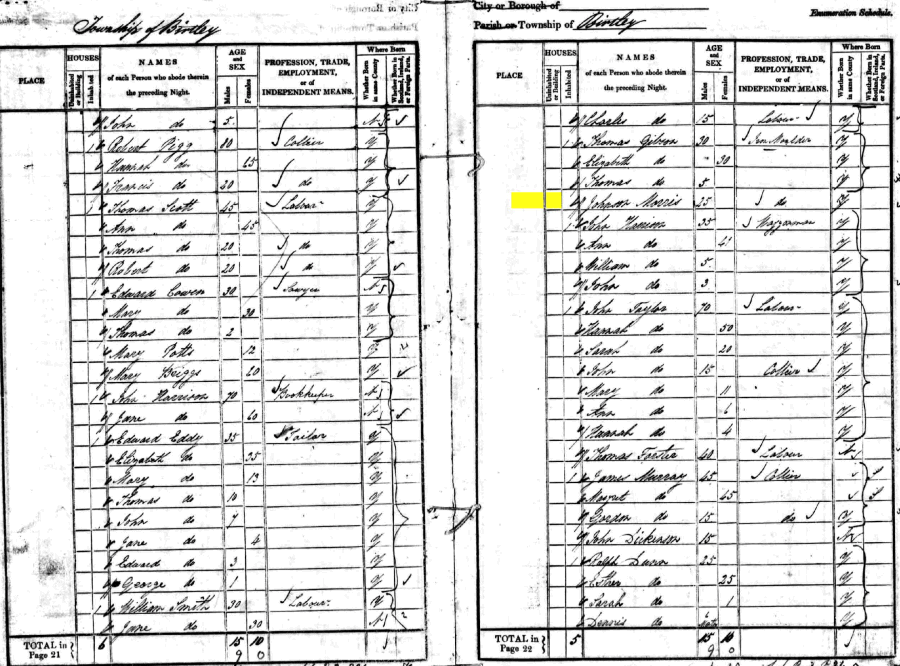 Township of Birtley
PLACE
HOUSES
Uninhabited or Building
Inhabited
NAMES
of each Person who abode therein
the preceding Night.
AGE
and
SEX
Males
Females
PROFESSION, TRADE,
EMPLOYMENT,
or of
INDEPENDENT MEANS.
Where Born
Whether Born in same County
Whether Born in Scotland, Ireland, or Foreign Parts.
John do 5 N
Robert 80 Collier Y
1 Hannah do 65 Y
Francis do 20 do Y
1 Thomas Scott 45 Labour Y
Ann do 45 Y
Thomas do 20 do Y
Robert do 20 do Y
1 Edward Cowen 30 Sawyer N
Mary do 30 Y
Thomas do 2 Y
Mary Potts 12 Y
Mary Briggs 60 Y
1 John Harrison 70 Bookkeeper N
Jane do 60 N
1 Edward Eddy 35 Tailor Y
Elizabeth do 35 Y
Mary do 13 Y
Thomas do 10 Y
John do 7 Y
Jane do 4 Y
Edward do 3 Y
George do 1 Y
1 William Smith 30 Labour Y
Jane do 30 N
TOTAL in
Page 21
6 15 10
9 0
City or Borough of
Parish or Township of Birtley
Enumeration Schedule.
PLACE
HOUSES
Uninhabited or Building
Inhabited
NAMES
of each Person who abode therein
the preceding Night.
AGE
and
SEX
Males
Females
PROFESSION, TRADE,
EMPLOYMENT,
or of
INDEPENDENT MEANS.
Where Born
Whether Born in same County
Whether Born in Scotland, Ireland, or Foreign Parts.
Charles do 15 Labour Y
1 Thomas Gibson 30 Iron Moulder Y
Elizabeth do 30 Y
Thomas do 5 Y
Johnson Morris 25 do Y
1 John Harrison 35 Waggonman Y
Ann do 41 Y
William do 5 Y
John do 3 Y
1 John Taylor 70 Labour Y
Hannah do 50 Y
Sarah do 20 Y
John do 15 Collier Y
Mary do 11 Y
Ann do 6 Y
Hannah do 4 Y
Thomas Forster 40 Labour N
1 James Murray 45 Collier
Margret do 45
Gordon do 15 do Y
John Dickinson 15 N
1 Ralph Dunn 25 Y
Esther do 25 Y
Sarah do 1 Y
Dennis do 6 Y
TOTAL in
Page 22
5 15 10
9 0